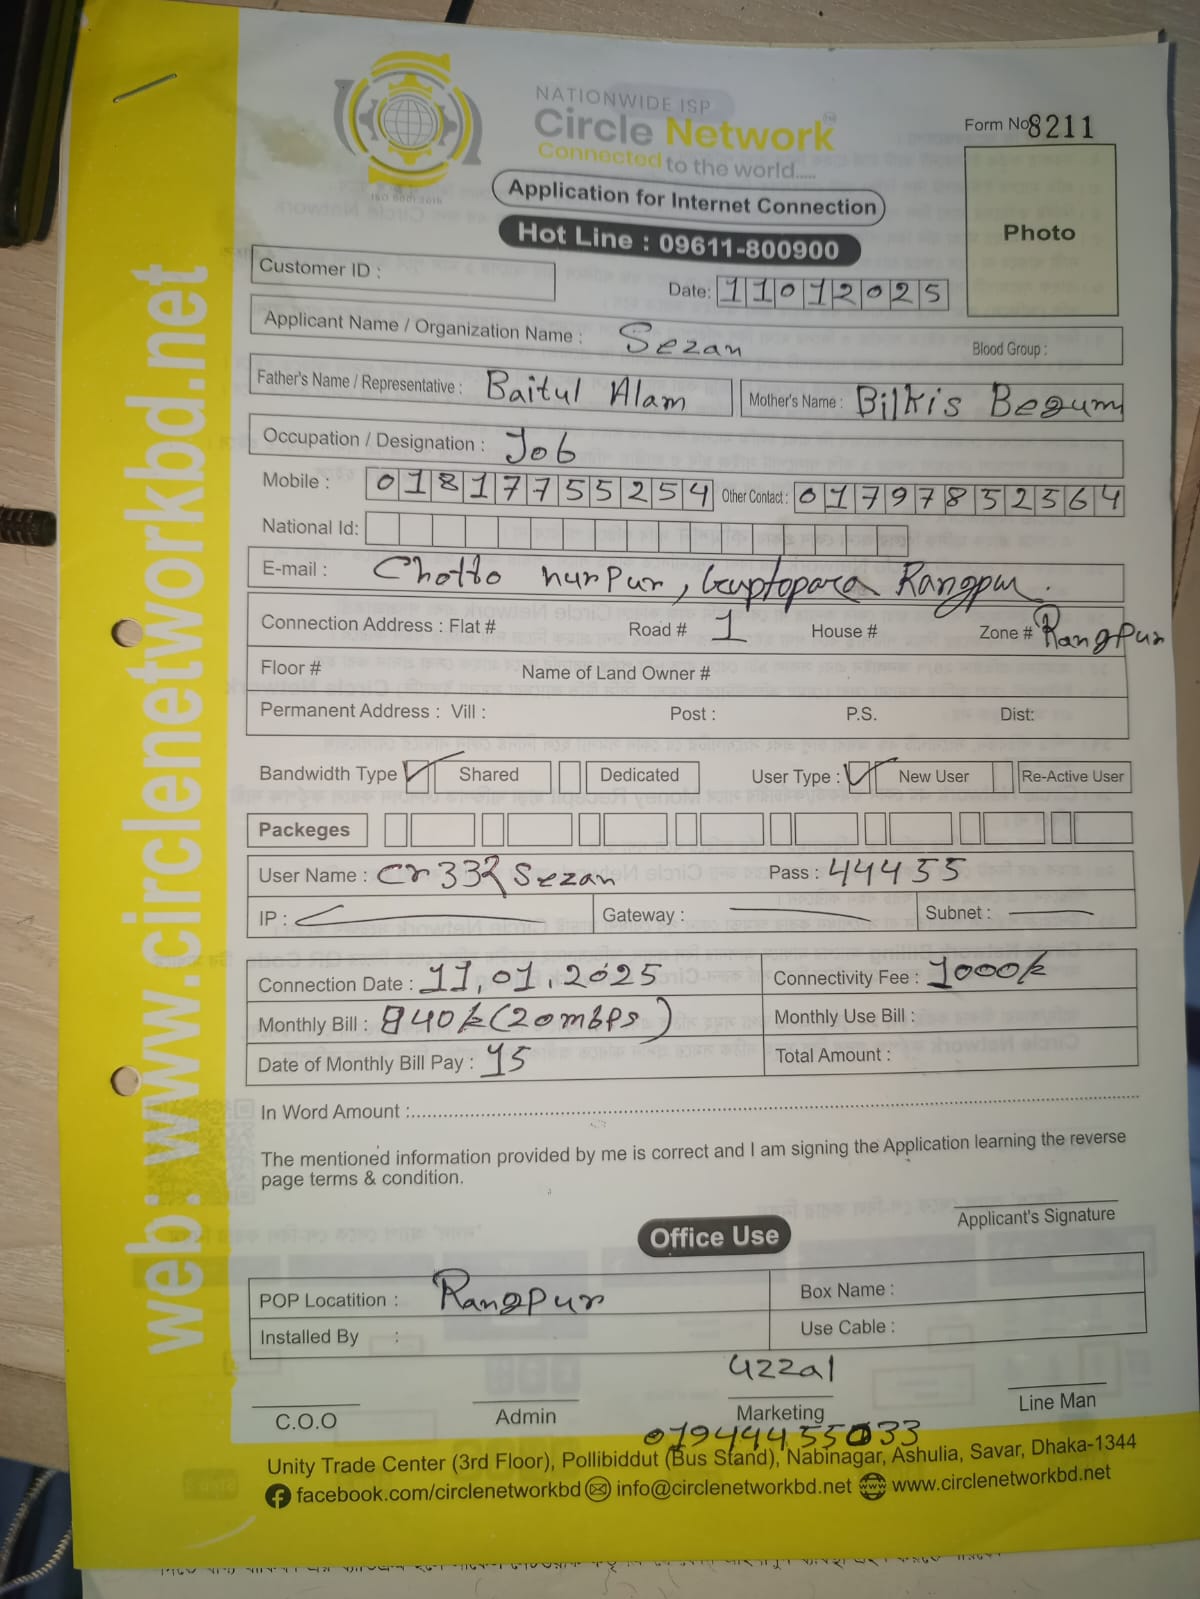 web: www.circlenetworkbd.net
NATIONWIDE ISP
Circle Network
Connected to the world.....
ISO 9001:2015
Form No 8211
Application for Internet Connection
Hot Line : 09611-800900
Photo
Customer ID :
Date: 11012025
Applicant Name / Organization Name : Sezan Blood Group :
Father's Name / Representative : Baitul Alam Mother's Name : Bilkis Begum
Occupation / Designation : Job
Mobile : 01817755254 Other Contact : 01797852564
National Id:
E-mail : Chotto nurpur, Guptopara Rangpur.
Connection Address : Flat # Road # 1 House # Zone # Rangpur
Floor # Name of Land Owner #
Permanent Address : Vill : Post : P.S. Dist:
Bandwidth Type Shared Dedicated User Type : New User Re-Active User
Packeges
User Name : cr332Sezan Pass : 44455
IP : Gateway : Subnet :
Connection Date : 11,01,2025 Connectivity Fee : 1000k
Monthly Bill : 840k (20mbps) Monthly Use Bill :
Date of Monthly Bill Pay : 15 Total Amount :
In Word Amount :
The mentioned information provided by me is correct and I am signing the Application learning the reverse
page terms & condition.
Applicant's Signature
Office Use
POP Locatition : Rangpur Box Name :
Installed By : Use Cable :
uzzal
C.O.O Admin Marketing Line Man
01944455033
Unity Trade Center (3rd Floor), Pollibiddut (Bus Stand), Nabinagar, Ashulia, Savar, Dhaka-1344
facebook.com/circlenetworkbd info@circlenetworkbd.net www.circlenetworkbd.net